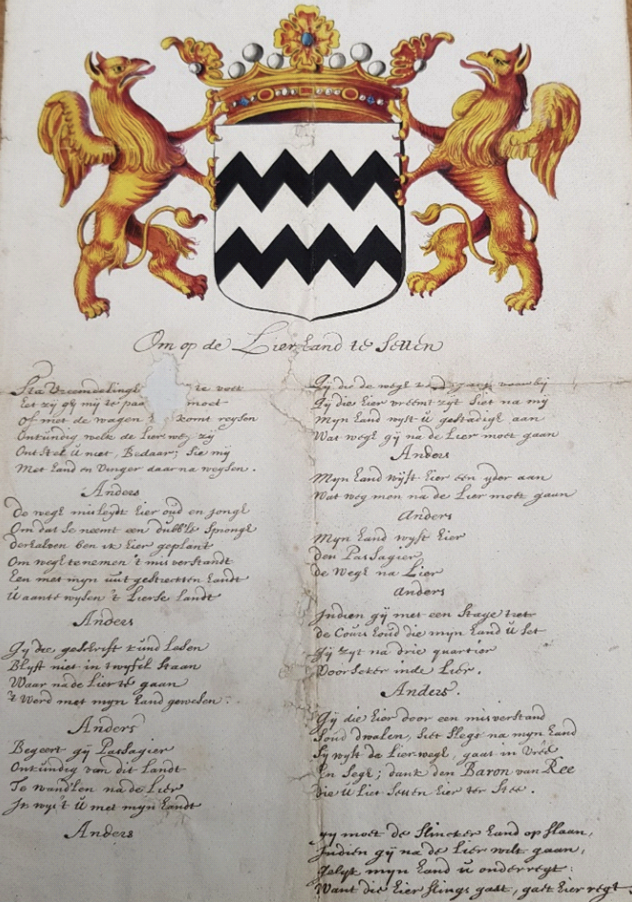 Om op de Lier hand te Setten
Sta Vreemdelingh te voet
Het zÿ gÿ mÿ te moet
of met de wagen komt reÿsen
Onkundig welk de Lier weg zÿ
Ontstelt U niet, Bedaar; Sie mÿ
Met hand en vinger daar na weÿsen.
Anders
De wegh misleÿdt hier oud en jongh
Om dat se neemt een dubb'le sprongh
derhalven ben ik hier geplant
Om wegh te nemen 't misverstandt
Een met mÿn uut gestreckten handt
U aante wÿsen 't Lierse landt
Anders
Gÿ die geschrift kund lesen
Blÿft niet in twÿfel staan
Waar na de Lier te gaan
't Werd met mÿn hand gewesen:
Anders
Begeert gÿ Passagier
Onkundig van dit Landt
Te wand'len na de Lier
Ik wÿs't U met mÿn handt
Anders
Gÿ die de wegh voorbÿ
Gÿ die hier vreemt zÿt Siet na mÿ
Mÿn hand wÿst U gestadigh aan
Wat wegh gÿ na de Lier moet gaan
Anders
Mÿn hand wÿst hier een ÿder aan
Wat weg men na de Lier moet gaan
Anders
Mÿn hand wÿst hier
den Passagier
de wegh na Lier
Anders
Indien gÿ met een Stage tret
de Cours houd die mÿn hand U Set
Gÿ zÿt na drie quartier
Voorseker in de Lier.
Anders.
Gÿ die hier door een misverstand
Sond dwalen, Siet Slegs na mÿn hand
Sÿ wÿst de Lier wegh, gaat in Vrée
En Segh; dank den Baron van Rée
die U liet Setten hier ter Stee.
gÿ moet de Slincker hand op Slaan,
Indien gÿ na de Lier wilt gaan,
Gelÿk mÿn hand U onderregt:
Want die hier Slings gaat, gaet hier regt